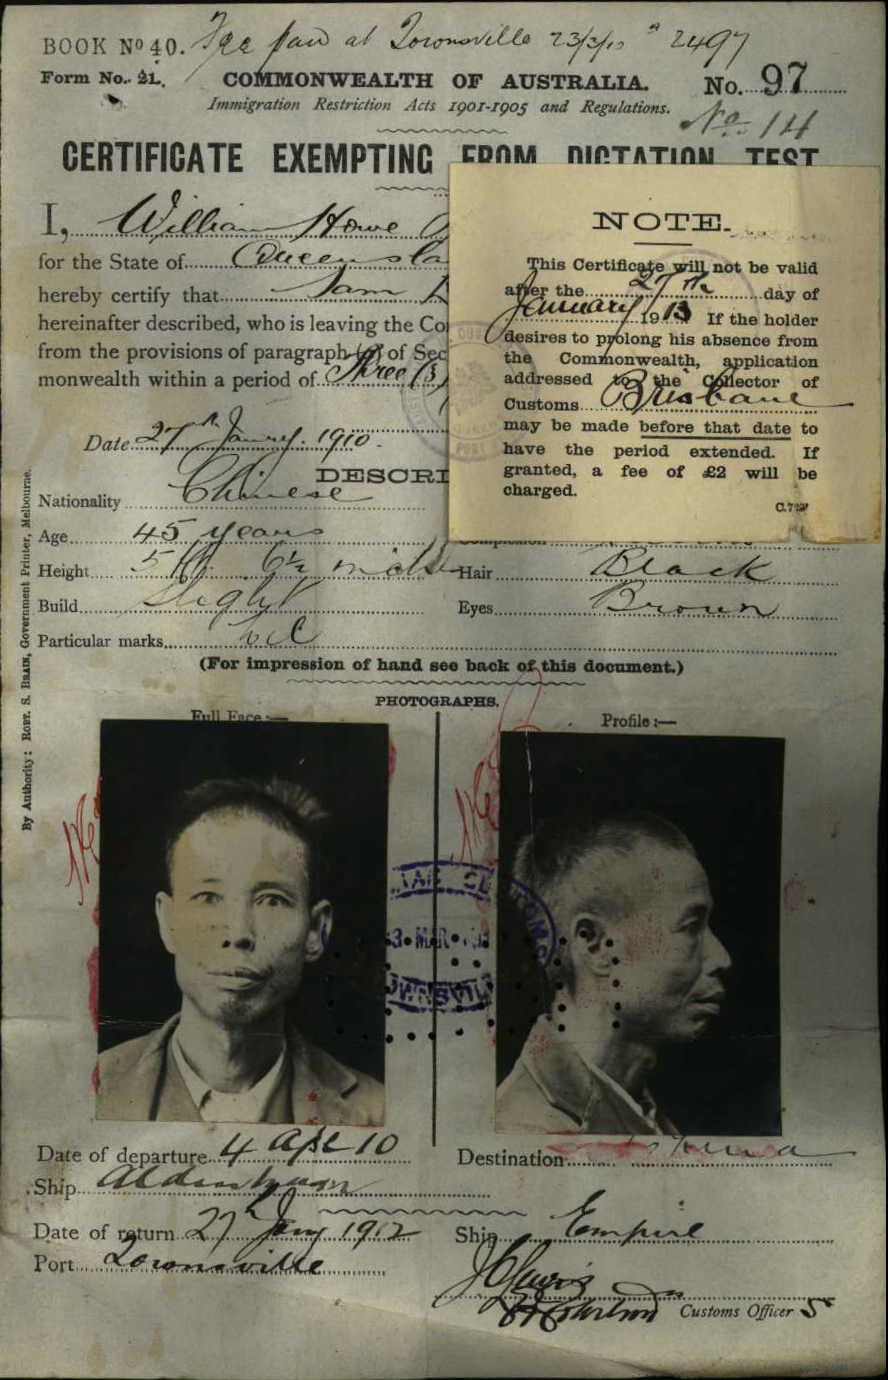 BOOK No 40. Fee paid at Townsville 23/3/10 2497
Form No. 21.
COMMONWEALTH OF AUSTRALIA.
No. 97
Immigration Restriction Acts 1901-1905 and Regulations.
No. 14
CERTIFICATE EXEMPTING FROM DICTATION TEST
I, William Howe
for the State of Queensla
hereby certify that Sam
hereinafter described, who is leaving the Co
from the provisions of paragraph of Sec
monwealth within a period of Three (3)
Date 27th Jany. 1910.
DESCRI
NOTE.
This Certificate will not be valid
after the 27th day of
January 1913 If the holder
desires to prolong his absence from
the Commonwealth, application
addressed to the Collector of
Customs Brisbane
may be made before that date to
have the period extended. If
granted, a fee of £2 will be
charged.
Nationality Chinese
Age 45 years
Height 5 ft. 6½ inches
Hair Black
Build Slight
Eyes Brown
Particular marks
(For impression of hand see back of this document.)
PHOTOGRAPHS.
Full Face:—
Profile:—
By Authority: ROBT. S. BRAIN, Government Printer, Melbourne.
Date of departure 4 Apl 10
Destination
Ship
Date of return 27th Jany 1912
Ship Empire
Port Townsville
Customs Officer